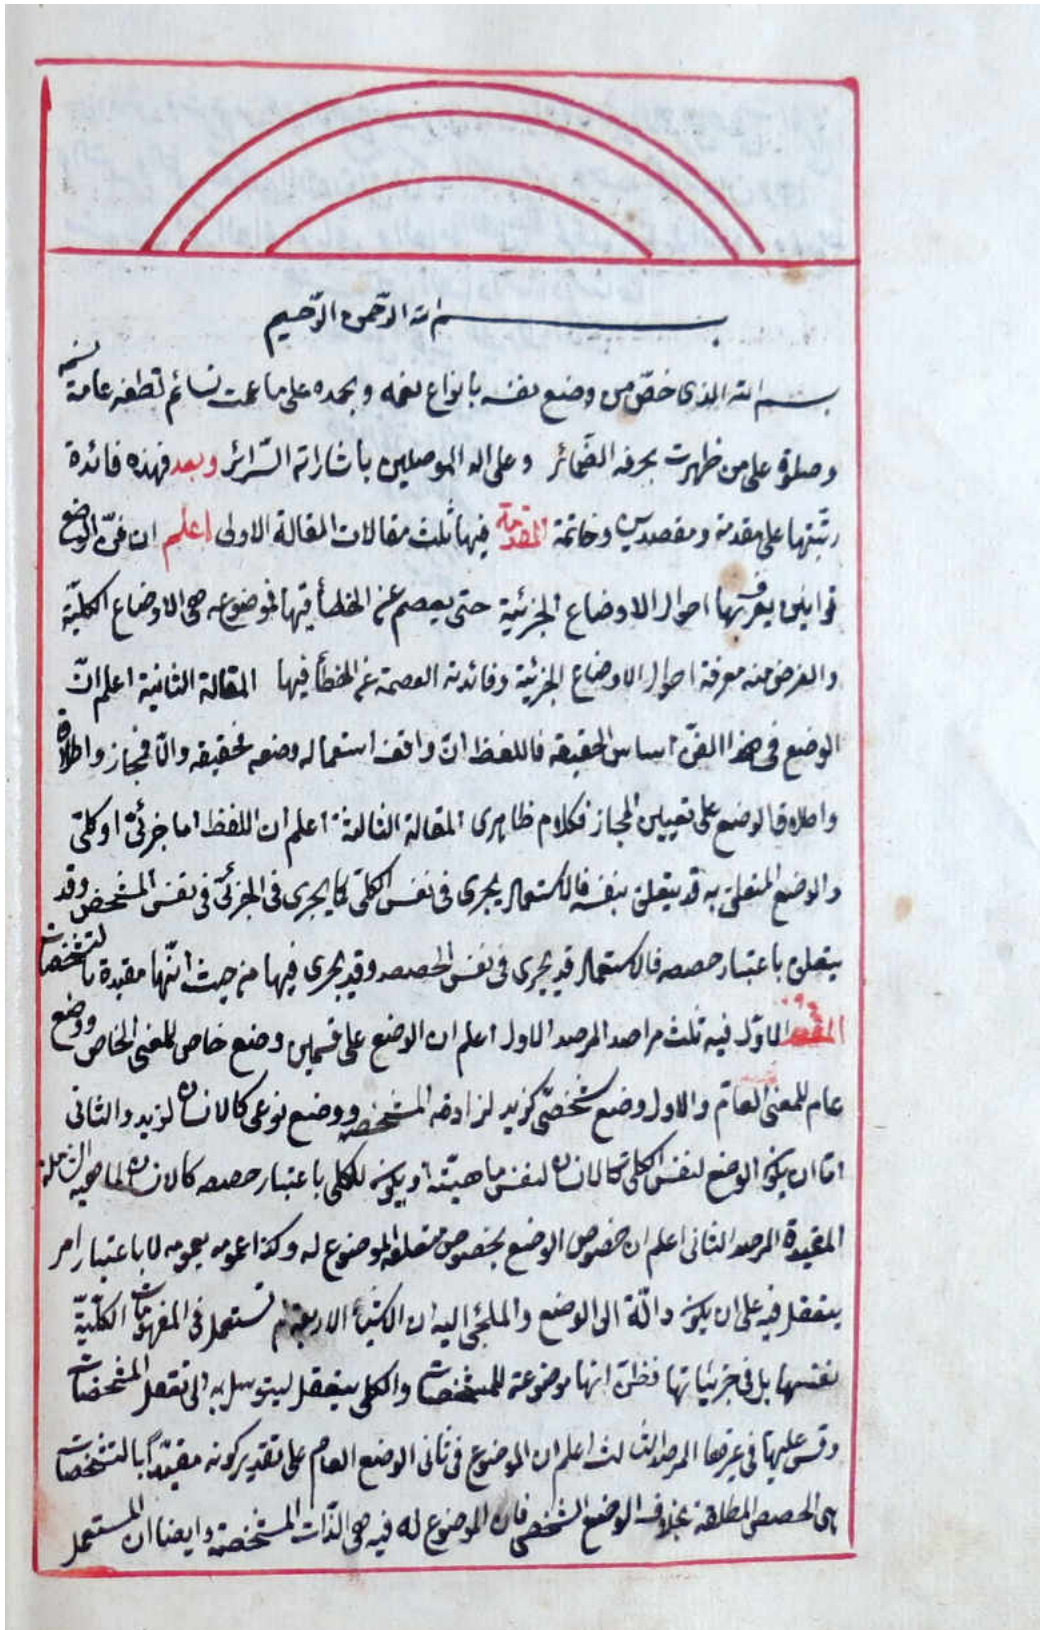 بسم الله الرّحمن الرّحيم
بسم الله الذى خصّ من وضع نفسه بانواع نعمه وبحمده على ما عمت نسائم لطفه عامة
وصلوة على من ظهرت بحرفه الضمائر وعلى اله الموصلين باشاراته السّرائر وبعد فهذه فائدة
رتّبتها على مقدمة ومقصدين وخاتمة المقدمة فيها ثلث مقالات المقالة الاولى اعلم ان فنّ الوضع
قوانين يعرف بها احوال الاوضاع الجزئية حتى يعصم عن الخطأ فيها فموضوعه هى الاوضاع الكليّة
والغرض منه معرفة احوال الاوضاع الجزئية وفائدته العصمة عن الخطأ فيها المقالة الثانية اعلم انّ
الوضع فى هذا الفنّ اساس الحقيقة فاللفظ انّ وافق استعماله وضعه فحقيقه والّا فمجاز واطلاق
واطلاق الوضع على تعيين المجاز فكلام ظاهرى المقالة الثالثة اعلم ان اللفظ اما جزئىّ او كلىّ
والوضع المتعلق به قد يتعلق بنفسه فالاستعمال يجرى فى نفس الكلىّ كما يجرى فى الجزئىّ فى نفس المشخص وقد
يتعلق باعتبار حصصه فالاستعمال قد يجرى فى نفس الحصص وقد يجرى فيها من حيث انّها مقيدة بالتشخصات
المقصد الاوّل فيه ثلث مراصد المرصد الاول اعلم ان الوضع على قسمين وضع خاص للمعنى الخاص ووضع
عام للمعنى العامّ والاول وضع شخصّى كزيد لزاوضه المشخصه ووضع نوعى كالانسان لزيد والثانى
امّا ان يكون الوضع لنفس الكلى كالانسان لنفس ماهيّته او يكون للكلى باعتبار حصصه كالانسان لماهيه
المقيدة المرصد الثانى اعلم ان خصوص الوضع بخصوص متعلقه الموضوع له وكذا عمومه بعمومه لا باعتبار امر
يتعقل فيه على ان يكون دالّة الى الوضع والملجئ اليه ان الاربعة لم تستعمل فى المفهومات الكليّة
نفسها بل فى جزئياتها فظنّ انها موضوعة للمشخصات والكلى يتعقل ليتوسل به الى تعقل المشخصات
وقس عليها فى غيرها المرصد الثالث اعلم ان الموضوع فى ثانى الوضع العام على تقدير كونه مقيّداً بالتشخصات
هى الحصص المطلقة بخلاف الوضع الشخصى فان الموضوع له فيه هى الذّات المشخصة وايضا ان المستعمل